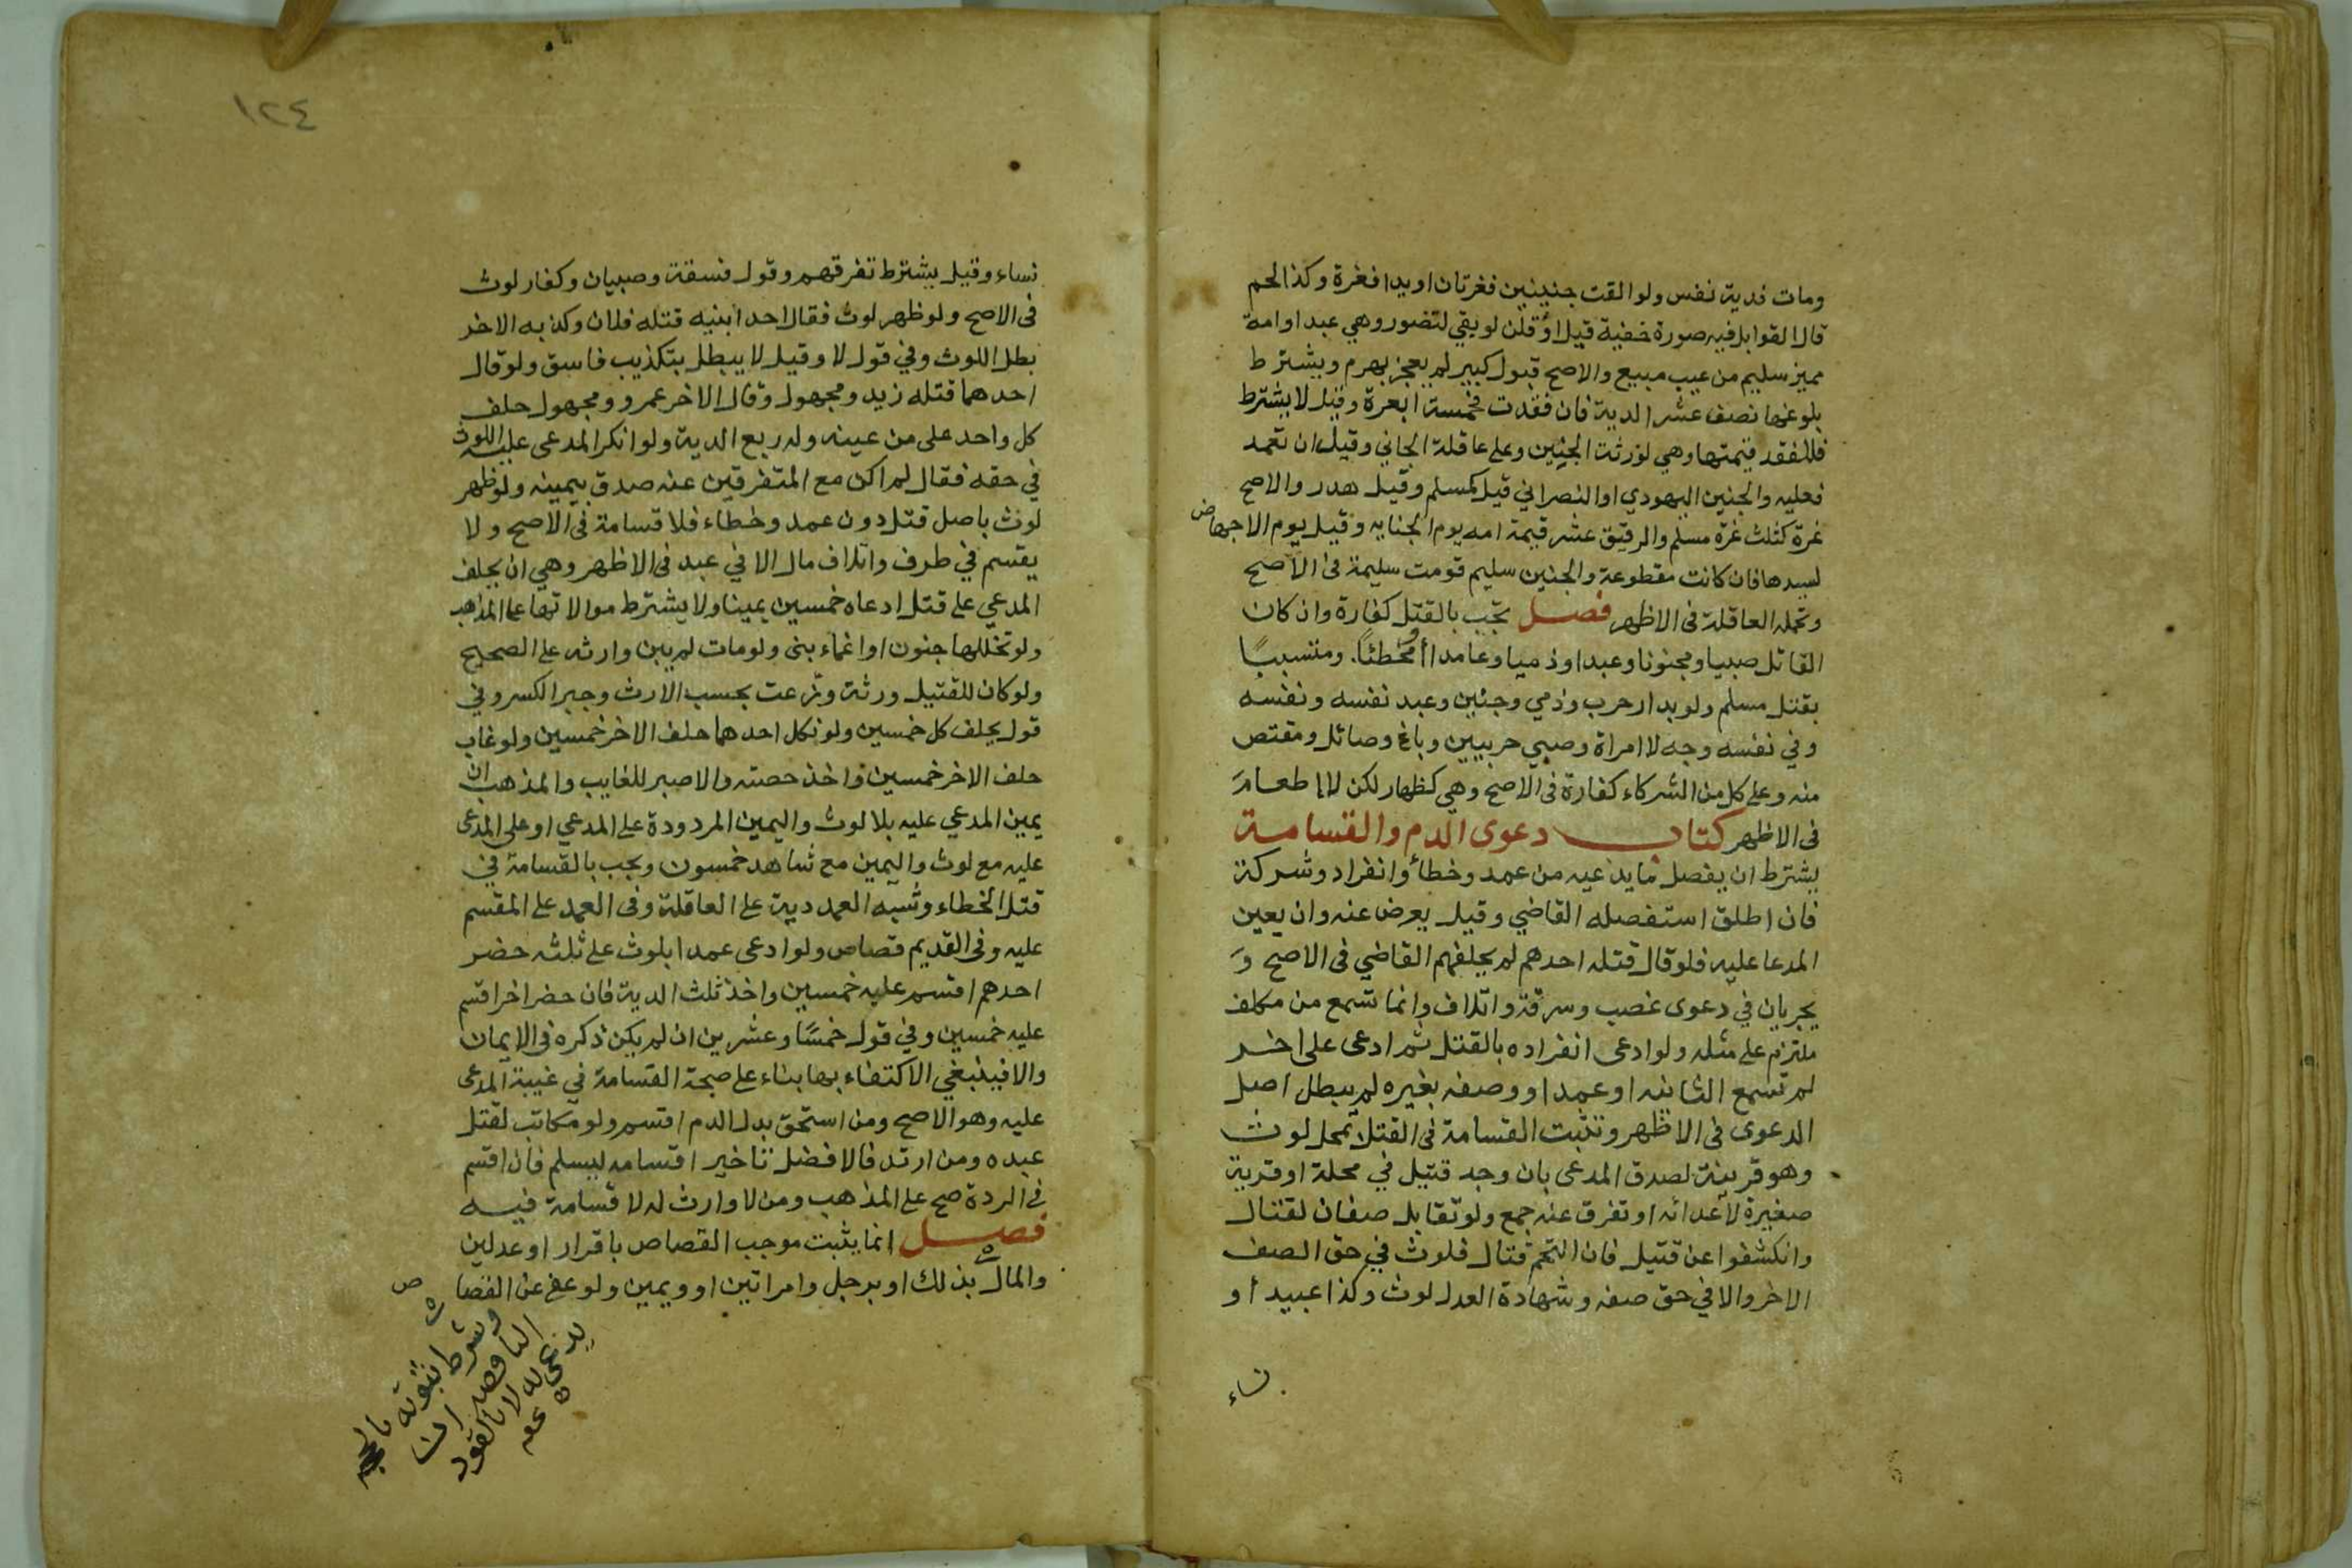 ومات فدية نفس ولو القت جنينين فغرتان او يدا فغرة وكذا لحم
قال القوابل فيه صورة خفية قيل او قلن لو بقي لتصور وهي عبد او امة
مميز سليم من عيب مبيع والاصح قبول كبير لم يعجز بهرم ويشترط
بلوغها نصف عشر الدية فان فقدت فخمسة ابعرة وقيل لا يشترط
فللفقد قيمتها وهي لورثة الجنين وعلى عاقلة الجاني وقيل ان تعمد
فعليه والجنين اليهودي او النصراني قيل كمسلم وقيل هدر والاصح
غرة كثلث غرة مسلم والرقيق عشر قيمة امه يوم الجنايه وقيل يوم الاجهاض
لسيدها فان كانت مقطوعة والجنين سليم قومت سليمة فى الاصح
وتحمله العاقلة فى الاظهر فصل تجب بالقتل كفارة وان كان
القاتل صبيا ومجنونا وعبدا وذميا وعامدا أو مخطئًا ومتسببًا
بقتل مسلم ولو بدار حرب وذمي وجنين وعبد نفسه ونفسه
وفي نفسه وجه لا امراة وصبي حربيين وباغ وصائل ومقتص
منه وعلى كل من الشركاء كفارة فى الاصح وهي كظهار لكن لا اطعام
فى الاظهر كتاب دعوى الدم والقسامة
يشترط ان يفصل ما يدعيه من عمد وخطأ وانفراد وشركة
فان اطلق استفصله القاضي وقيل يعرض عنه وان يعين
المدعا عليه فلو قال قتله احدهم لم يحلفهم القاضي فى الاصح و
يجريان في دعوى غصب وسرقة واتلاف وانما تسمع من مكلف
ملتزم على مثله ولو ادعى انفراده بالقتل ثم ادعى على اخر
لم تسمع الثانيه او عمدا ووصفه بغيره لم يبطل اصل
الدعوى فى الاظهر وتثبت القسامة فى القتل بمحل لوث
وهو قرينة لصدق المدعى بان وجد قتيل في محلة او قرية
صغيرة لاعدائه او تفرق عنه جمع ولو تقابل صفان لقتال
وانكشفوا عن قتيل فان التحم قتال فلوث في حق الصف
الاخر والا في حق صفه وشهادة العدل لوث وكذا عبيد أو
نساء
١٢٤
نساء وقيل يشترط تفرقهم وقول فسقة وصبيان وكفار لوث
فى الاصح ولو ظهر لوث فقال احد ابنيه قتله فلان وكذبه الاخر
بطل اللوث وفي قول لا وقيل لا يبطل بتكذيب فاسق ولو قال
احدهما قتله زيد ومجهول وقال الاخر عمرو ومجهول حلف
كل واحد على من عينه وله ربع الدية ولو انكر المدعى عليه اللوث
في حقه فقال لم اكن مع المتفرقين عنه صدق بيمينه ولو ظهر
لوث باصل قتل دون عمد وخطاء فلا قسامة فى الاصح ولا
يقسم في طرف واتلاف مال الا في عبد فى الاظهر وهي ان يحلف
المدعي على قتل ادعاه خمسين يمينا ولا يشترط موالاتها على المذهب
ولو تخللها جنون او اغماء بنى ولو مات لم يبن وارثه على الصحيح
ولو كان للقتيل ورثة وزعت بحسب الارث وجبر الكسر وفي
قول يحلف كل خمسين ولو نكل احدهما حلف الاخر خمسين ولو غاب
حلف الاخر خمسين واخذ حصته والا صبر للغايب والمذهب ان
يمين المدعي عليه بلا لوث واليمين المردودة على المدعي او على المدعى
عليه مع لوث واليمين مع شاهد خمسون ويجب بالقسامة في
قتل الخطاء وشبه العمد دية على العاقلة وفى العمد على المقسم
عليه وفى القديم قصاص ولو ادعى عمدا بلوث على ثلثه حضر
احدهم اقسم عليه خمسين واخذ ثلث الدية فان حضر اخر اقسم
عليه خمسين وفي قول خمسًا وعشرين ان لم يكن ذكره فى الايمان
والا فينبغي الاكتفاء بها بناء على صحة القسامة في غيبة المدعى
عليه وهو الاصح ومن استحق بدل الدم اقسم ولو مكاتب لقتل
عبده ومن ارتد فالافضل تاخير اقسامه ليسلم فان اقسم
فى الردة صح على المذهب ومن لا وارث له لا قسامة فيه
فصل انما يثبت موجب القصاص باقرار او عدلين
والمال بذلك او برجل وامراتين او ويمين ولو عفى عن القصاص
وشرط ثبوته بالحجه
الناقصه ان
يدعى به لا بالقود